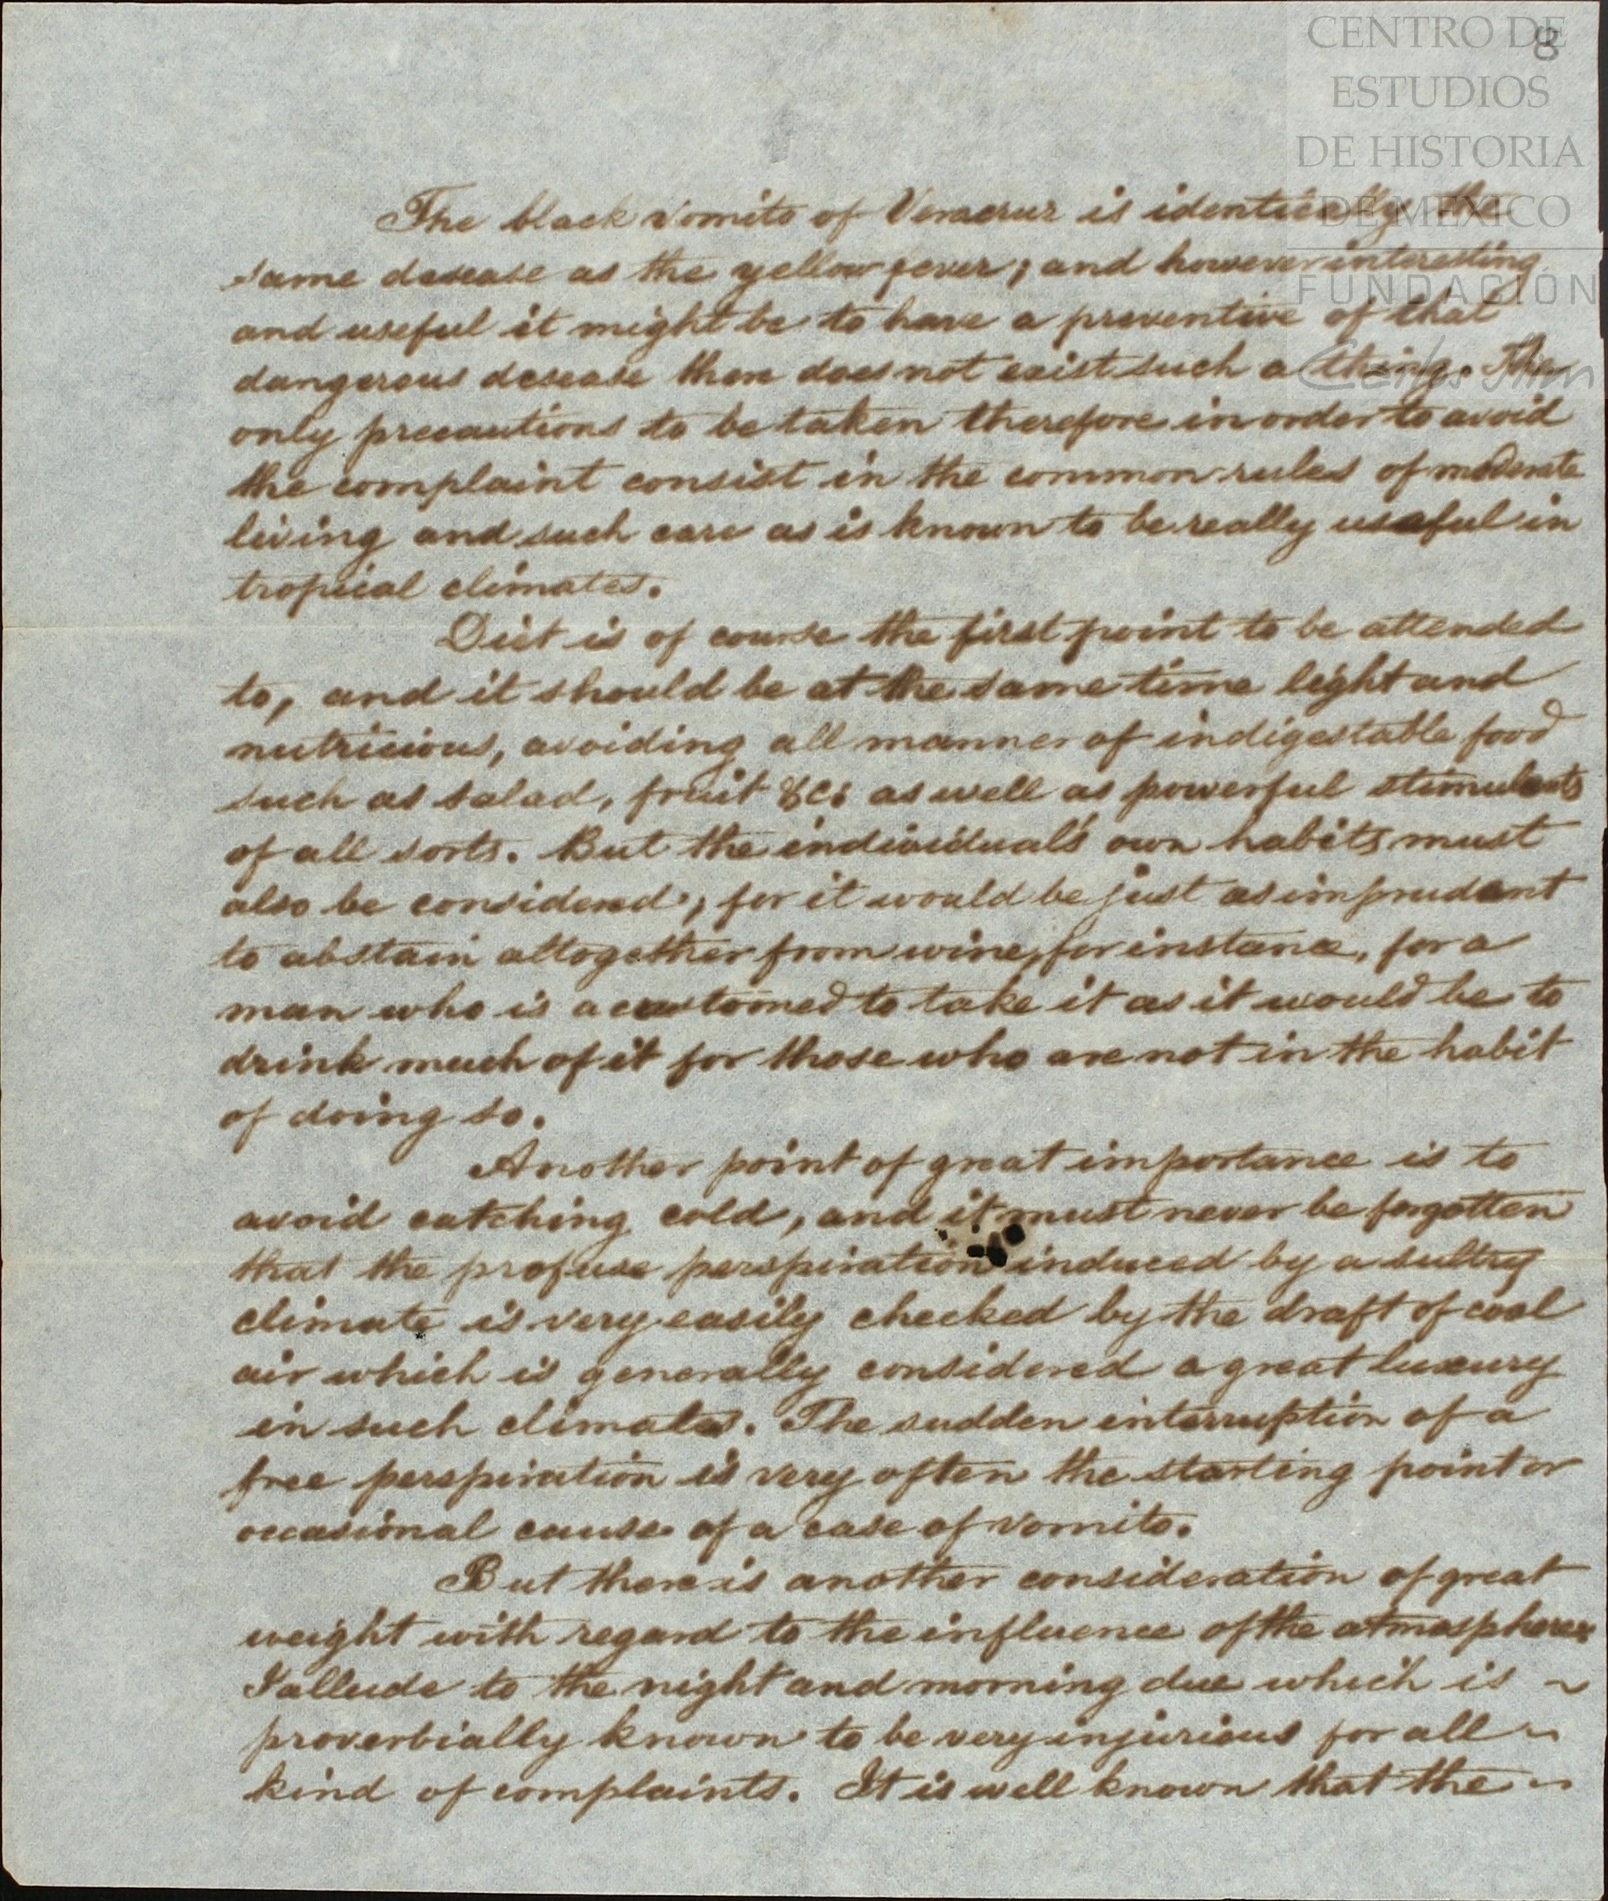 CENTRO DE
ESTUDIOS
DE HISTORIA
DE MÉXICO
FUNDACIÓN
Carlos Slim
8
The black vomito of Veracruz is identically the
same desease as the yellow fever; and however interesting
and useful it might be to have a preventive of that
dangerous desease there does not exist such a thing. The
only precautions to be taken therefore in order to avoid
the complaint consist in the common rules of moderate
living and such care as is known to be really useful in
tropical climates.
Diet is of course the first point to be attended
to, and it should be at the same time light and
nutricious, avoiding all manner of indigestable food
such as salad, fruit &c: as well as powerful stimulants
of all sorts. But the individual's own habits must
also be considered; for it would be just as imprudent
to abstain altogether from wine, for instance, for a
man who is accustomed to take it as it would be to
drink much of it for those who are not in the habit
of doing so.
Another point of great importance is to
avoid catching cold, and it must never be forgotten
that the profuse perspiration induced by a sultry
climate is very easily checked by the draft of cool
air which is generally considered a great luxury
in such climates. The sudden interruption of a
free perspiration is very often the starting point or
occasional cause of a case of vomito.
But there is another consideration of great
weight with regard to the influence of the atmosphere:
I allude to the night and morning due which is ~
proverbially known to be very injurious for all ~
kind of complaints. It is well known that the ~